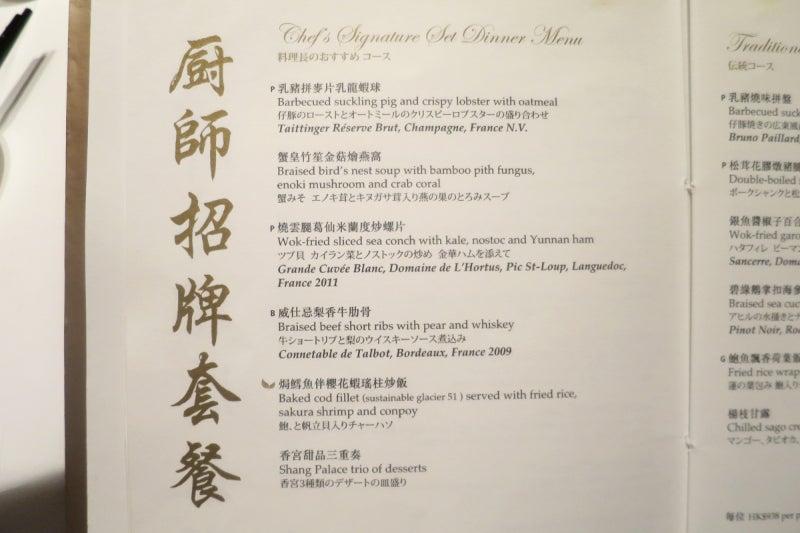 厨師招牌套餐
Chef's Signature Set Dinner Menu
料理長のおすすめ コース
P 乳豬拼麥片乳龍蝦球
Barbecued suckling pig and crispy lobster with oatmeal
仔豚のローストとオートミールのクリスピーロブスターの盛り合わせ
Taittinger Réserve Brut, Champagne, France N.V.
蟹皇竹笙金菇燴燕窩
Braised bird's nest soup with bamboo pith fungus,
enoki mushroom and crab coral
蟹みそ エノキ茸とキヌガサ茸入り燕の巣のとろみスープ
P 燒雲腿葛仙米蘭度炒螺片
Wok-fried sliced sea conch with kale, nostoc and Yunnan ham
ツブ貝 カイラン菜とノストックの炒め 金華ハムを添えて
Grande Cuvée Blanc, Domaine de L'Hortus, Pic St-Loup, Languedoc,
France 2011
B 威仕忌梨香牛肋骨
Braised beef short ribs with pear and whiskey
牛ショートリブと梨のウイスキーソース煮込み
Connetable de Talbot, Bordeaux, France 2009
焗鱈魚伴櫻花蝦瑤柱炒飯
Baked cod fillet (sustainable glacier 51 ) served with fried rice,
sakura shrimp and conpoy
鮑、と帆立貝入りチャーハソ
香宮甜品三重奏
Shang Palace trio of desserts
香宮3種類のデザートの皿盛り
Tradition
伝統コース
P 乳豬燒味拼盤
Barbecued suck
仔豚焼きの広東風
Bruno Paillard,
P 松茸花膠燉豬
Double-boiled
ポークシャンクと松
銀魚醬椒子百合
Wok-fried garo
ハタフィレ ピーマン
Sancerre, Doma
碧綠鵝掌扣海參
Braised sea cuc
アヒルの水掻きとナ
Pinot Noir, Ro
G 鮑魚飄香荷葉飯
Fried rice wrap
蓮の葉包み 鮑入り
楊枝甘露
Chilled sago cre
マンゴー、タピオカ、
每位 HK$938 per p